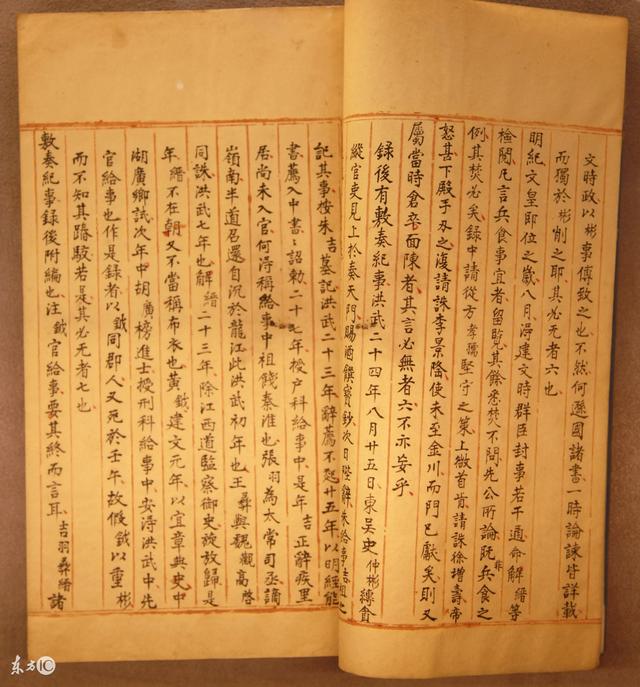 文時政以彬事傅致之也不然何遜國諸書一時論諫皆詳載
而獨於彬削之耶其必无者六也
明紀文皇即位之歲八月淂建文時群臣封事若干通命解縉等
檢閱凡言兵食事宜者留覽其餘悉焚不問先公所論既非兵食之
例其焚必矣録中請從方孝孺堅守之策上微首肯請誅徐增壽帝
怒甚下殿手刃之復請誅李景隆使未至金川而門已献矣則又
屬當時倉卒面陳者其言必無者六不亦妄乎
録後有敷奏紀事洪武二十四年八月廿五日東吴史仲彬縛貪
縱官吏見上於奏天門賜酒饌寳鈔次日陛辭朱給事吉祖之
記其事按朱吉墓記洪武二十三年辭薦不起廿五年以明經能
書薦入中書〻詔勅二十七年授户科給事中是年吉正辭疾里
居尚未入官何淂稱給事中祖餞秦淮也張羽為太常司丞謫
嶺南半道召還自沉於龍江此洪武初年也王彞與魏觀高啓
同誅洪武七年也解縉二十三年除江西道監察御史旋放歸是
年縉不在朝又不當稱布衣也黄鉞建文元年以宜章典史中
湖廣鄉試次年中胡廣榜進士授刑科給事中安淂洪武中先
官給事也作是録者以鉞同郡人又死於壬午故假鉞以重彬
而不知其踳駁若是其必无者七也
敷奏紀事録後附編也注鉞官給事要其終而言耳吉羽彞縉諸
东方IC